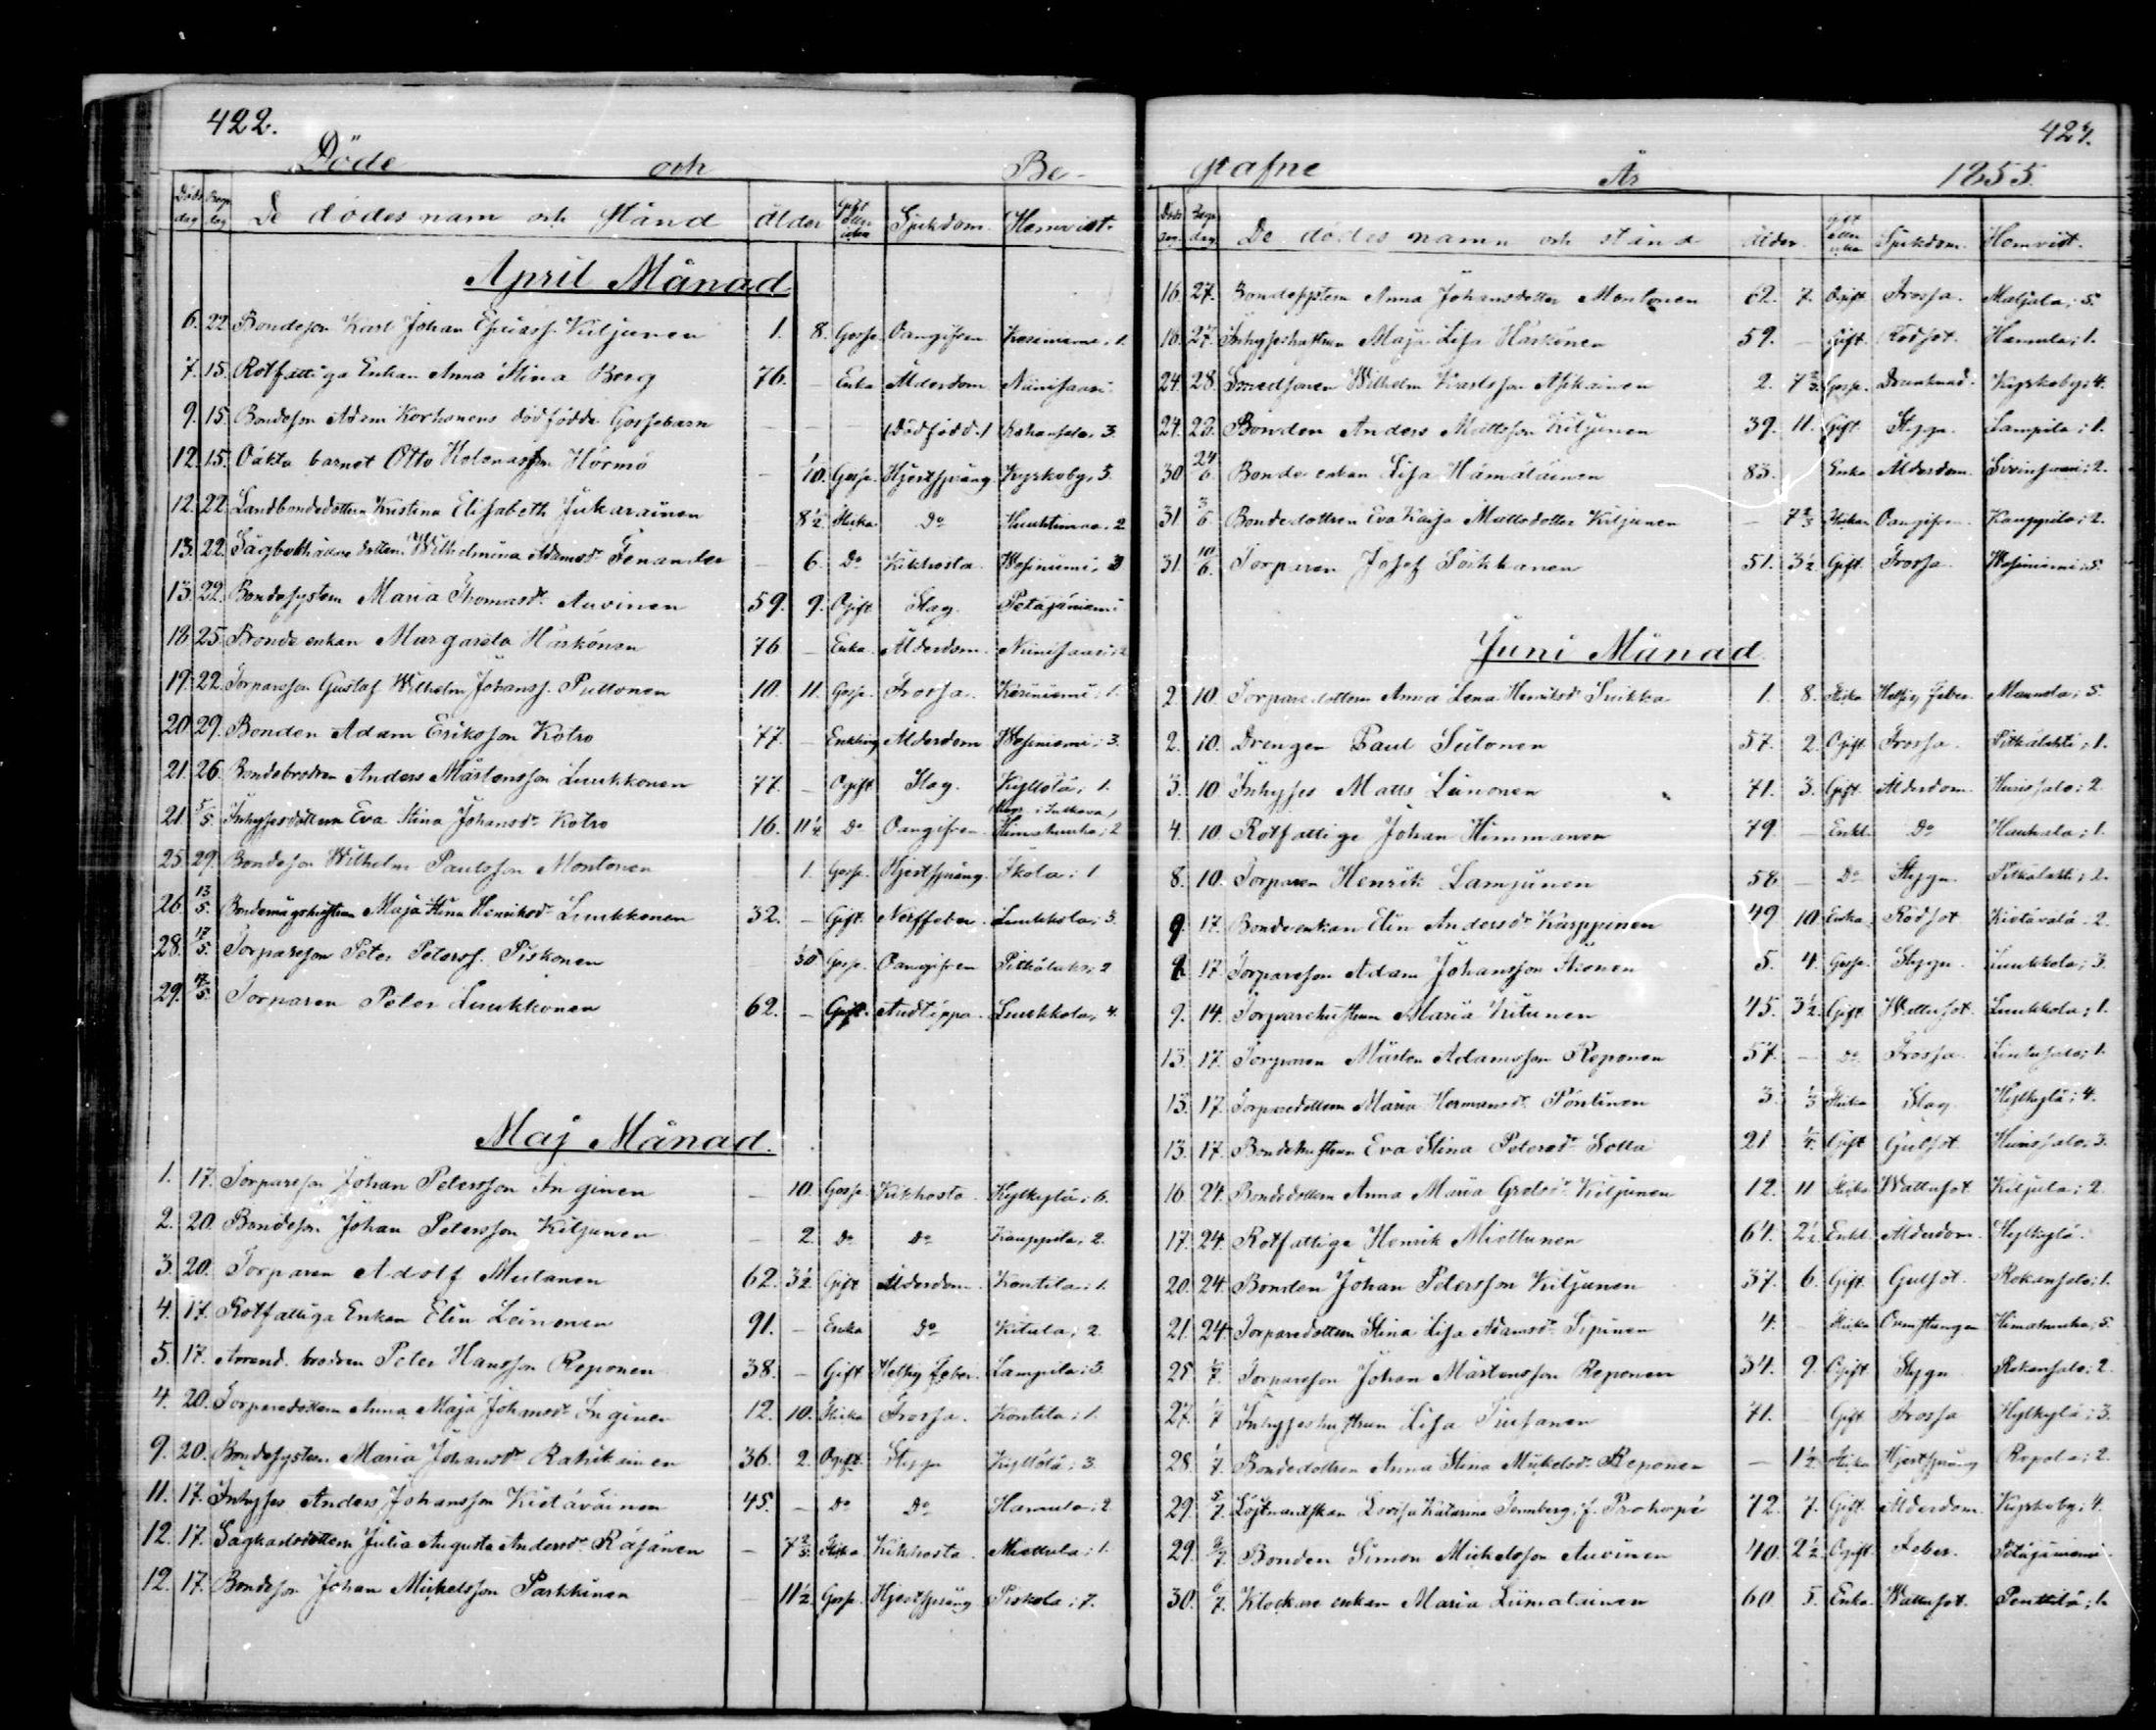 422.
Döde och Be-
Döds dag Begr. dag De dödes nam och stånd ålder gift eller ogift Sjukdom. Hemvist.
April Månad
6. 22 Bondeson Karl Johan Kiljunen 1. 8. Gosse Oangifven Kesiniemi, 1.
7. 15. Rotfattiga Enkan Anna Stina Berg 76. – Enka Ålderdom Niinisaari
9. 15. Bondeson Adam Korhonens dödfödda Gossebarn – – – /Dödfödd./ Rahansalo, 3.
12. 15. Oäkta barnet Otto Hörmö – 1/10. Gosse Hjertsprång Kyrkoby, 3.
12. 22 Landbondedottern Kristina Elisabeth Jukarainen – 8½ Flicka Do 2
13. 22. dotter Wilhelmina Adamsdr Fenander – 6. Do Kikhosta Wesiniemi, 3
13. 22. Bondesystern Maria Thomasdr Auvinen 59. 9. Ogift Slag. Petäjäniemi
18. 25 Bonde enkan Margareta Härkönen 76 – Enka Ålderdom. Niinisaari, 2
19. 22 Torpareson Gustaf Wilhelm Johanss. Puttonen 10. 11. Gosse Frossa. Kesiniemi, 1.
20 29. Bonden Adam Eriksson Kotro 77. – Enkling Ålderdom Wesiniemi, 3.
21. 26. Bondebrodren Anders Mårtensson Luukkonen 77. – Ogift Slag. Kyllölä, 1.
21. 5/5. Inhysesdottern Eva Stina Johansdr Kotro 16. 11½ Do Oangifven Himahuuha, 2
25 29. Bondeson Wilhelm Paulsson Montonen – 1. Gosse Hjertsprång Ikola, 1
26. 13/5. Bondemågshustrun Maja Stina Henriksdr Luukkonen 32. – Gift Nerffeber. Luukkola, 3.
28. 17/5. Torpareson Peter Peterss. Piskonen 1/30 Gosse Oangifven Pitkälaks, 2
29. 17/5. Torparen Peter Luukkonen 62. – Gift Luukkola, 4.
Maj Månad.
1. 17. Torpareson Johan Petersson Inginen – 10. Gosse Kikhosta Kylkylä, 6.
2. 20. Bondeson Johan Petersson Kiljunen – 2. Do Do Kauppila, 2.
3. 20. Torparen Adolf Multanen 62. 3½ Gift Ålderdom. Kontila, 1.
4. 17. Rotfattiga Enkan Elin Leinonen 91. – Enka Do Kitula, 2.
5. 17. Arrend. brodren Peter Hansson Reponen 38. – Gift Hetsig feber Lampila, 3
4. 20. Torparedottern Anna Maja Johansdr Inginen 12. 10. Flicka Frossa. Kontila, 1.
9. 20. Bondesystern Maria Johansdr Rahikainen 36. 2. Ogift Stygn Kyllölä, 3.
11. 17. Inhyses Anders Johansson Kietäväinen 45. – Do Do Hamula, 2
12. 17. Sågkarlsdottern Julia Augusta Andersdr Räsänen – 7⅔. Flicka Kikhosta Miettula, 1.
12. 17. Bondeson Johan Mickelsson Parkkinen – 11½ Gosse Hjertsprång Piskola, 7.
423.
grafne År 1855.
Döds dag Begr. dag De dödes namn och stånd ålder. gift eller ogift Sjukdom. Hemvist.
16 27. Bondesystern Anna Johansdotter Montonen 62. 7. Ogift Frossa. 5.
16. 27. Inhyseshustrun Maja Lisa Härkönen 59. – Gift. Rödsot. Hamula, 1.
24. 28. Smedsonen Wilhelm Karlsson Askainen 2. 7⅔ Gosse. Drunknad. Kyrkoby, 4.
24. 28. Bonden Anders Mattsson Kiljunen 39. 11. Gift Stygn. Lampila, 1.
30 24/6 Bonde enkan Lisa Hämäläinen 83. Enka Ålderdom. 2.
31 3/6 Bondedottren Eva Kaisa Mattsdotter Kiljunen – 7⅔ Flickan Oangifven. Kauppila, 2.
31. 10/6. Torparen Josef Torkkanen 51. 3½ Gift. Frossa. Wesiniemi, 5.
Juni Månad.
2. 10. Torparedottern Anna Lena Henriksdr Suikka 1. 8. Flicka Hetsig feber 5.
2. 10. Drengen Paul Siitonen 57. 2. Ogift Frossa. Pitkälahti, 1.
3. 10 Inhyses Matts Liinonen 71. 3. Gift. Ålderdom Huissalo, 2.
4. 10. Rotfattige Johan Himmanen 79 – Enkl. Do Haukala, 1.
8. 10. Torparen Henrik Lamjunen 58 – Do Stygn. Pitkälahti, 2.
9. 17. Bondeenkan Elin Andersdr Karppinen 49 10 Enka. Rödsot Kietävälä. 2.
9. 17. Torpareson Adam Johansson Ikonen 5. 4. Gosse. Stygn. Luukkola, 3.
9. 14. Torparehustrun Maria Kitunen 45. 3½. Gift Wattusot. Luukkola, 1.
13. 17. Torparen Mårten Adamsson Reponen 57. – Do Frossa. Lintusalo, 1.
13. 17. Torparedottern Maria Hermansdr Pöntinen 3. ⅓ Flicka Slag Kylkylä, 4.
13. 17. Bondehustrun Eva Stina Petersdr Sotta 21 Gift Gulsot. Huissalo, 3.
16. 24. Bondedottern Anna Maria Grelsdr Kiljunen 12. 11 Flicka Wattusot. Kiljula, 2.
17. 24. Rotfattige Henrik Miettunen 64. 2½ Enkl. Ålderdom. Kylkylä.
20. 24. Bonden Johan Petersson Kiljunen 37. 6. Gift. Gulsot. Rahansalo, 1.
21. 24 Torparedottern Stina Lisa Adamsdr Sipinen 4. – Flicka Ormstungen Himahuuha, 5.
25. 1/7. Torpareson Johan Mårtensson Reponen 34. 9. Ogift Stygn Rahansalo, 2.
27. 1/7 Inhyseshustrun Lisa Tiusanen 71. – Gift Frossa Kylkylä, 3.
28. 1/7. Bondedottren Anna Stina Mickelsdr Reponen – 1½ Flicka Hjertsprång Repola, 2.
29. 5/7. Löjtnantskan Lovisa Katarina Tennberg, f. Prokopé 72. 7. Gift Ålderdom. Kyrkoby, 4.
29. 6/7. Bonden Simon Mickelsson Auvinen 40. 2½ Ogift Feber. Petäjäniemi
30. 6/7. Klockare enkan Maria Liimatainen 60 5. Enka Wattusot. Penttilä, 1.